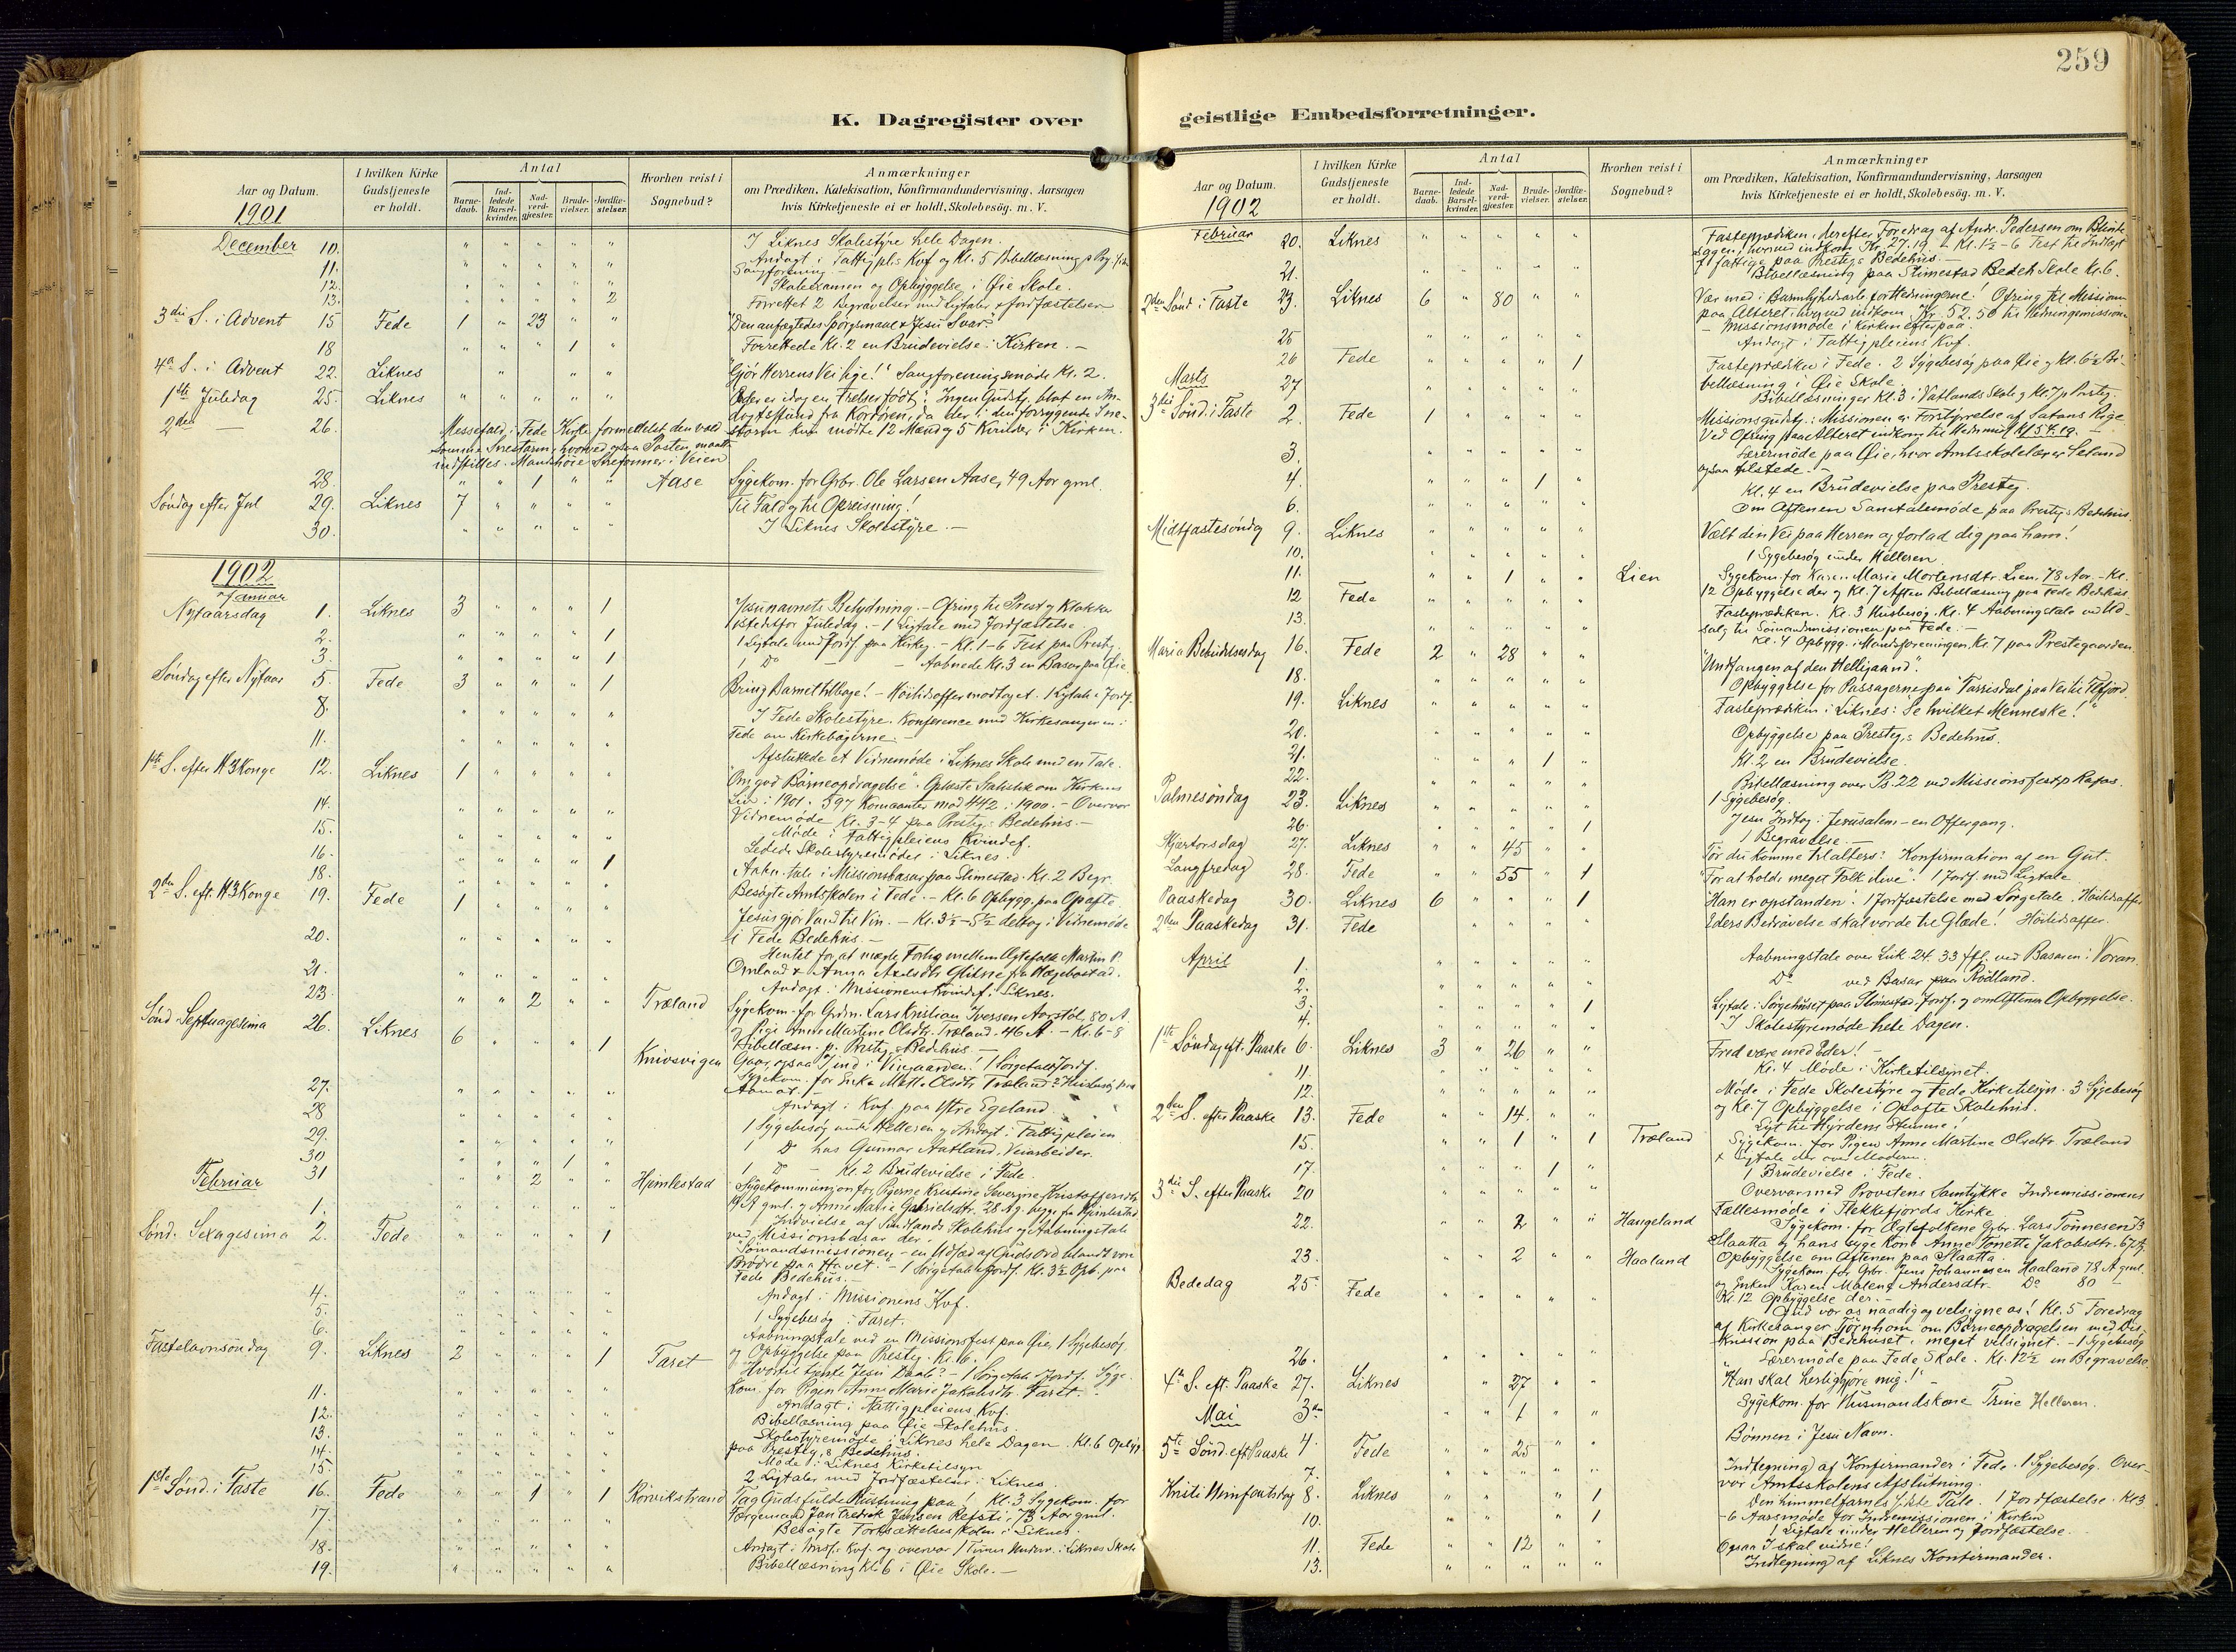 259
K. Dagregister over
geistlige Embedsforretninger.
Aar og Datum.
1901
I hvilken Kirke
Gudstjeneste
er holdt.
Antal
Barne-
daab.
Ind-
ledede
Barsel-
kvinder.
Nad-
verd-
gjæster.
Brude-
vielser.
Jordfæ-
stelser.
Hvorhen reist i
Sognebud?
Anmærkninger
om Prædiken, Katekisation, Konfirmandundervisning, Aarsagen
hvis Kirketjeneste ei er holdt, Skolebesøg. m. V.
December 10. I Liknes Skolestyre hele Dagen.
11. Andagt i Fattigpl. Kvf og Kl. 5 Bibellæsning
Sangforening. –
12. Skoleexamen og Opbyggelse i Øie Skole.
13. 2 Forrettet 2 Begravelser med Ligtaler & Jordfæstelser
3die S. i Advent 15 Fede 1 23 "Den anfegtedes Spørgsmaal & Jesu Svar."
18 1 Forrettede Kl. 2 en Brudevielse i Kirken. –
4de S. i Advent 22. Liknes "Gjør Herrens Vei lige!" Sangforeningsmøde Kl. 2.
1ste Juledag 25. Liknes Eder er idag en Frelser født! Ingen Gudstj. blot en An-
dagtsstund fra Kordøren, da der i den forrygende Sne-
2den — 26. Messefald i Fede Kirke formedelst den vold storm kun mødte 12 Mænd og 5 Kvinder i Kirken.
somme Snestorm, hvorved ogsaa Posten maatte
indstilles. Mandshøie Snefonner i Veien
28. 1 Aase Sygekom. for Grbr. Ole Larsen Aase, 49 Aar gml.
Søndag efter Jul 29. Liknes 7 Til Fald og til Opreisning!
30. I Liknes Skolestyre. –
1902
Januar
Nytaarsdag 1. Liknes 3 1 Jesunavnets Betydning. – Ofring til Prest og Klokker
istedetfor Juledag. – 1 Ligtale med Jordfæstelse.
2. 1 1 Ligtale med Jordf. paa Kirkeg. – Kl. 1–6 Fest paa Presteg.
3. 1 1 Do – – Aabnede Kl. 3 en Basar paa Øie
Søndag efter Nytaar 5. Fede 3 1 Bring Barnet tilbage! – Høitidsoffer modtaget. 1 Ligtale & Jordf.
8. I Fede Skolestyre. Konference med Kirkesangeren i
Fede om Kirkebøgerne. –
11. Afsluttede et Vidnemøde i Liknes Skole med en Tale.
1ste S. efter H 3 Konge 12. Liknes 1 "Om god Børneopdragelse". Oplæste Statistik om Kirkens
Liv i 1901. 597 Komuanter mod 442 i 1900. – Overvar
Vidnemøde Kl. 3–4 paa Presteg.s Bedehus. –
14. Møde i Fattigpleiens Kvindef.
15. Ledede Skolestyremødet i Liknes.
16. 1 Aabn. tale i Missionsbasar paa Stimestad. Kl. 2 Begr.
18. Besøgte Amtsskolen i Fede. – Kl. 6 Opbygg. paa Opofte
2den S. eft. H 3 Konge 19. Fede 1 Jesus gjør Vand til Vin. – Kl. 3½–5½ deltog i Vidnemøde
i Fede Bedehus. –
20. Hentet for at mægle Forlig mellem Ægtefolk Martin P.
Omland & Anna Axelsdtr Glitne fra Hægebostad.
21. Andagt i Missionens Kvindef. i Liknes.
23. 2 Træland Sygekom. for Grdm. Lars Kristian Iversen Aarstøl 80 A.
og Pige Anne Martine Olsdtr. Træland. 46 A. – Kl. 6–8
Bibellæsn. p. Presteg.s Bedehus. –
Sønd. Septuagesima 26. Liknes 6 1 Knivsvigen Gaar ogsaa I ind i Vingaarden! 1 Sørgetale & Jordf.
Sygekom. for Enke Mette Olsdtr Træland.
27. Andagt i Kvf. paa Ytre Egeland
28 1 Sygebesøg under Helleren og Andagt i Fattigpleien
29. 1 Do hos Gunnar Aatland, Veiarbeider.
30 1 1 Do – Kl. 2 Brudevielse i Fede.
31 2 Hjemlestad Sygekommunion for Pigerne Kristine Severine Kristoffersdtr
19 A. gml. og Anne Marie Gabrielsdtr. 28 A g. begge fra Hjemlestad
Februar 1. Indvielse af Sindlands Skolehus og Aabningstale
ved Missionsbasar der.
Sønd. Sexagesima 2. Fede 1 "Sømandsmissionen – en Udsæd af Guds Ord blandt vore
Brødre paa Havet". – 1 Sørgetale & Jordf. Kl. 3½ Opb. paa
Fede Bedehus. –
4. Andagt i Missionens Kvf.
5. 1 Sygebesøg i Faret.
6. Aabningstale ved en Missionsfest paa Øie, 1 Sygebesøg
og Opbyggelse paa Presteg. Kl. 6.
Fastelavnsøndag 9. Liknes 2 1 Faret Hvortil tjente Jesu Daab? – 1 Sørgetale Jordf. Syge-
kom. for Pigen Anne Marie Jakobsdtr. Faret. –
11. Andagt i Fattigpleiens Kvf.
12. Bibellæsning paa Øie Skolehus
13. Skolestyremøde i Liknes hele Dagen. Kl. 6 Opbyg
paa Presteg.s Bedehus.
14. Møde i Liknes Kirketilsyn
15. 2 Ligtaler med Jordfæstelser i Liknes
1ste Sønd. i Faste 16. Fede 1 1 Rørvikstrand Tag Guds fulde Rustning paa! Kl. 3 Sygekom. for
Færgemand Jan Fredrik Jensen Refsti, 73 Aar gml.
17. Besøgte Fortsættelsesskolen i Liknes.
18. Andagt i Miss. Kvf. og overvar 1 Times Underv. i Liknes Skole
19. Bibellæsning Kl. 6 i Øie Skole. –
Aar og Datum.
1902
I hvilken Kirke
Gudstjeneste
er holdt.
Antal
Barne-
daab.
Ind-
ledede
Barsel-
kvinder.
Nad-
verd-
gjæster.
Brude-
vielser.
Jordfæ-
stelser.
Hvorhen reist i
Sognebud?
Anmærkninger
om Prædiken, Katekisation, Konfirmandundervisning, Aarsagen
hvis Kirketjeneste ei er holdt, Skolebesøg. m. V.
Februar 20. Liknes Fasteprædiken, derefter Foredrag af Andr. Pedersen om Blinde
sagen, hvorved indkom Kr. 27.19. – Kl. 1½–6 Fest til Indtægt
f. fattige paa Presteg.s Bedehus. –
21. Bibellæsning paa Stimestad Bedeh. Skole Kl. 6.
2den Sønd. i Faste 23. Liknes 6 80 Vær med i Barmhjertigheds Hedningerne! Ofring til Missionen
paa Alteret, hvorved indkom Kr. 52.50 til Hedningemission
– Missionsmøde i Kirken efterpaa.
25 Andagt i Fattigpleiens Kvf.
26 Fede 1 Fasteprædiken i Fede. 2 Sygebesøg paa Øie og Kl. 6 Bi-
bellæsning i Øie Skole.
Marts 27 Bibellæsninger Kl. 3 i Vatlands Skole og Kl. 7 p Presteg.
3die Sønd. i Faste 2. Fede 1 Missionsgudstj.: Missionen er Forstyrrelse af Satans Rige
Ved Ofring paa Alteret indkom til Hedn. miss.
3. Lærermøde paa Øie, hvor Amtsskolelærer Seland
ogsaa tilstede. –
4. 1 Kl. 4 en Brudevielse paa Presteg.
6. Om Aftenen Samtalemøde paa Presteg.s Bedehus.
Midtfastesøndag 9. Liknes Vælt din Vei paa Herren og forlad dig paa ham!
10. 1 Sygebesøg under Helleren
11. 1 Lien Sygekom. for Karen Marie Mortensdtr. Lien. 78 Aar. – Kl.
12 Opbyggelse der og Kl. 7 Aften Bibellæsning paa Fede Bedehus.
12 Fede Fasteprædiken. Kl. 3 Husbesøg. Kl. 4 Aabningstale ved Ud-
salg til Sømandsmissionen paa Fede. –
13. Kl. 4 Opbygg. i Mandsforeningen, Kl. 7 paa Prestegaarden.
Maria Bebudelsesdag 16. Fede 2 28 "Undfangen af den Helligaand".
18. Opbyggelse for Passagerne paa "Farrisdal" paa Vei til Flfjord.
19. Liknes Fasteprædiken i Liknes: Se hvilket Menneske!"
20. Opbyggelse paa Presteg.s Bedehus.
21. 1 Kl. 2 en Brudevielse.
22. Bibellæsning over Ps. 22 ved Missionsfest p Rafos.
1 Sygebesøg.
Palmesøndag 23. Liknes Jesu Indtog i Jerusalem – en Offergang.
26. 1 1 Begravelse. –
Skjærtorsdag 27. Liknes 45 Tør du komme til alters? Konfirmation af en Gut.
Langfredag 28. Fede 55 1 "For at holde meget Folk ilive". 1 Jordf. med Ligtale
Paaskedag 30. Liknes 6 1 "Han er opstanden". 1 Jordfæstelse med Sørgetale. Høitidsoffer
2den Paaskedag 31. Fede Eders Bedrøvelse skal vorde til Glæde! Høitidsoffer.
April 1. Aabningstale over Luk 24. 33 ffl. ved Basaren i Voran.
2. Do ved Basar paa Rødland.
3. 1 Ligtale i Sørgehuset paa Stimestad, Jordf. og om Aftenen Opbyggelse.
4. I Skolestyremøde hele Dagen.
1ste Søndag eft. Paaske 6. Liknes 3 26 Fred være med Eder! –
11. Kl. 4 Møde i Kirketilsynet.
12. Møde i Fede Skolestyre og Fede Kirketilsyn. 3 Sygebesøg
og Kl. 7 Opbyggelse i Opofte Skolehus.
2den S. efter Paaske 13. Fede 14. Lyt til Hyrdens Stemme!
15. 1 1 Træland Sygekom. for Pigen Anne Martine Olsdtr Træland
& Ligtale der over Moderen.
17. 1 1 Brudevielse i Fede.
3die S. efter Paaske 20 Overvar med Provstens Samtykke Indremissionens
Fællesmøde i Flekkefjords Kirke
22. 2 Haugeland Sygekom. for Ægtefolkene Grbr. Lars Tønnesen 73
Slaatta og hans syge Kone Anne Tonette Jakobsdtr. 67 A.
Opbyggelse om Aftenen paa Slaatta.
23. 2 Haaland Sygekom. for Grbr. Jens Johannesen Haaland 78 A gml.
og Enken Karen Malene Andersdtr. Do 80 –
Kl. 12 Opbyggelse der. –
Bededag 25 Fede Gud vær os naadig og velsigne os! Kl. 5 Foredrag
af Kirkesanger Tjørnhom om Børneopdragelsen med Dis-
kussion paa Bedehuset, meget velsignet. – 1 Sygebesøg
26. Lærermøde paa Fede Skole. Kl. 12½ en Begravelse
4de S. eft. Paaske 27. Liknes 27 "Han skal herliggjøre mig!" –
Mai 3 1 Sygekom. for Husmandskone Trine Helleren.
5te Sønd. eft Paaske 4. Fede 25 Bønnen i Jesu Navn.
7. Indtegning af Konfirmander i Fede. 1 Sygebesøg. Over-
var Amtsskolens Afslutning.
Kristi Himfartsdag 8. Liknes 1 Den himmelfarnes sidste Tale. 1 Jordfæstelse. Kl 3
–6 Aarsmøde for Indremissionen i Kirken
10. 1 1 Ligtale under Helleren og Jordfæstelse.
11. Fede 12 Ogsaa I skal vidne!
13. Indtegning af Liknes Konfirmander.